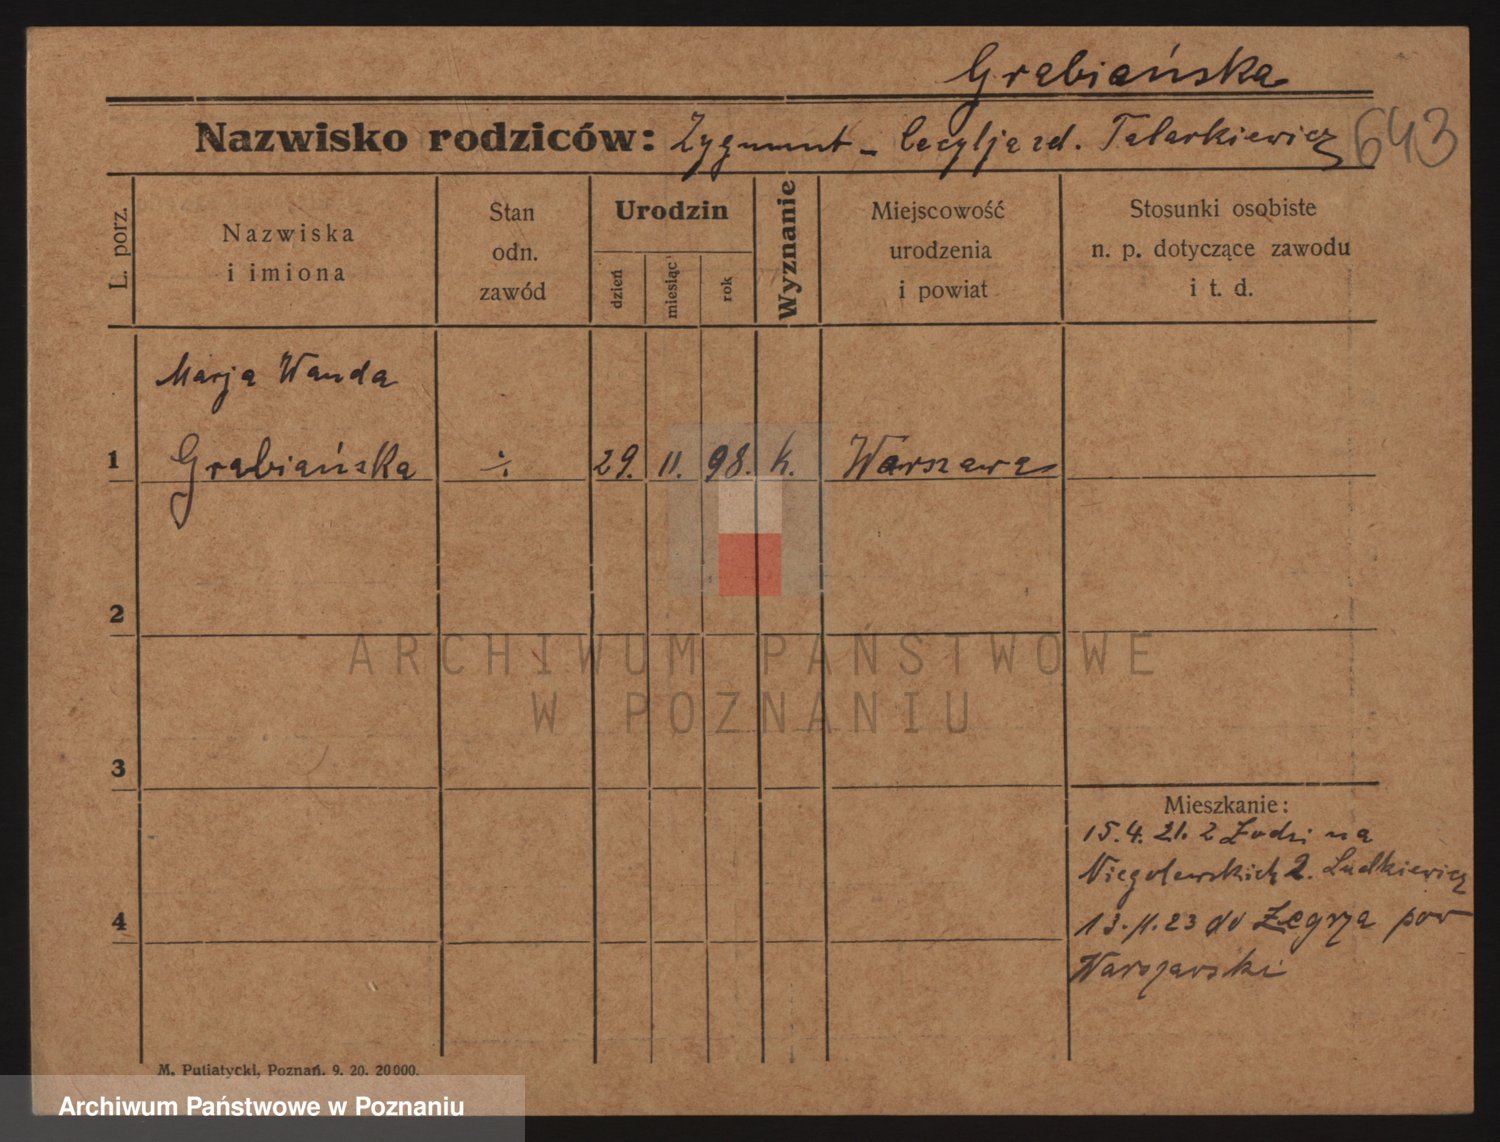 Grabiańska
Nazwisko rodziców: Zygmunt - Cecylja zd. Talarkiewicz 643
L. porz.
Nazwiska
i imiona
Stan
odn.
zawód
Urodzin
dzień
miesiąc
rok
Wyznanie
Miejscowość
urodzenia
i powiat
Stosunki osobiste
n. p. dotyczące zawodu
i t. d.
Marja Wanda
1 Grabiańska ·/. 29. 11. 98. k. Warszawa
2
3
4
Mieszkanie:
15.4.21. z Łodzi na
Niegolewskich 2. Ludkiewicz
13.11.23 do Zegrza pow
Warszawski
M. Putiatycki, Poznań. 9. 20. 20 000.
ARCHIWUM PAŃSTWOWE
W POZNANIU
Archiwum Państwowe w Poznaniu